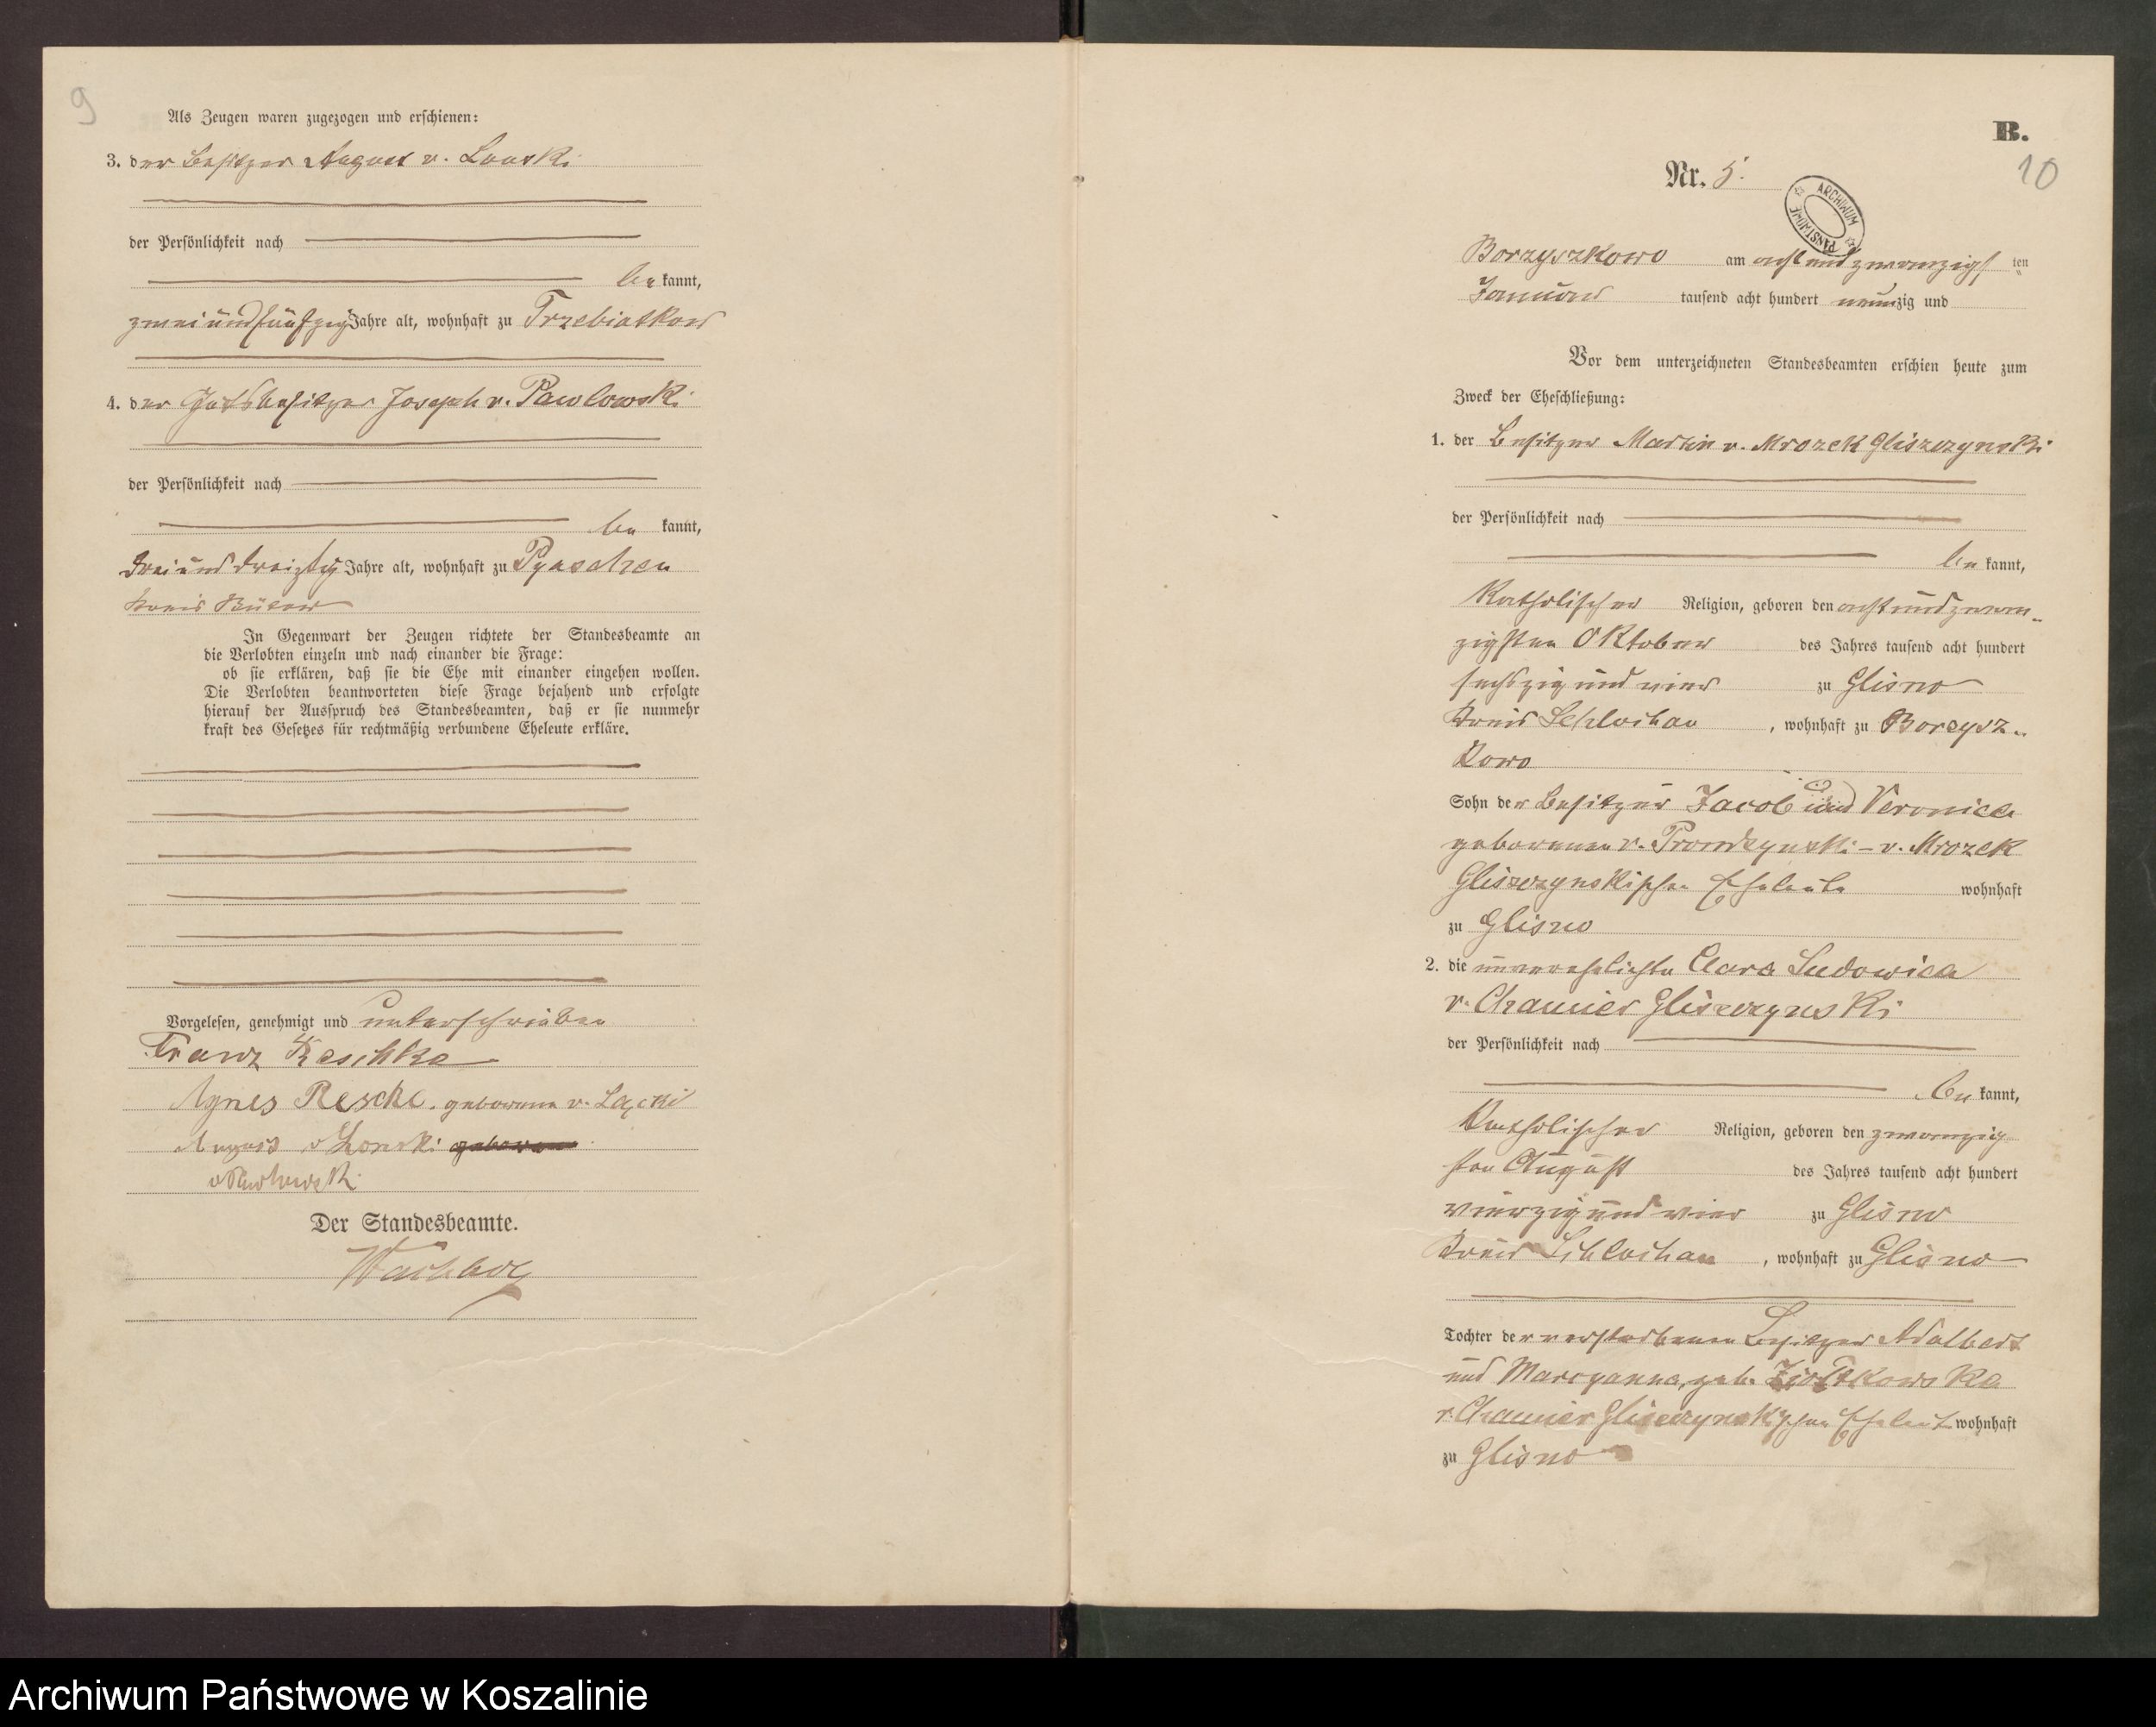 9
Als Zeugen waren zugezogen und erschienen:
3. der Besitzer August v. Lonski
der Persönlichkeit nach
be kannt,
zweiundfünfzig Jahre alt, wohnhaft zu Trzebiatkow
4. der Gutsbesitzer Joseph v. Pawlowski
der Persönlichkeit nach
be kannt,
dreiunddreißig Jahre alt, wohnhaft zu Pyaschen
Kreis Bütow
In Gegenwart der Zeugen richtete der Standesbeamte an
die Verlobten einzeln und nach einander die Frage:
ob sie erklären, daß sie die Ehe mit einander eingehen wollen.
Die Verlobten beantworteten diese Frage bejahend und erfolgte
hierauf der Ausspruch des Standesbeamten, daß er sie nunmehr
kraft des Gesetzes für rechtmäßig verbundene Eheleute erkläre.
Vorgelesen, genehmigt und unterschrieben
Franz Reschke
Agnes Reschke geborene v. Łącki
August v Lonski geborene
v Pawlowski
Der Standesbeamte.
B.
10
Nr. 5.
ARCHIWUM PAŃSTWOWE
Borzyszkowo am achtundzwanzigsten
Januar tausend acht hundert neunzig und
Vor dem unterzeichneten Standesbeamten erschien heute zum
Zweck der Eheschließung:
1. der Besitzer Martin v. Mrozek Gliszczynski
der Persönlichkeit nach
be kannt,
Katholischer Religion, geboren den achtundzwan-
zigsten Oktober des Jahres tausend acht hundert
sechszig und vier zu Glisno
Kreis Schlochau, wohnhaft zu Borzysz-
kowo
Sohn der Besitzer Jacob und Veronica
geborenen v. Prondzynski - v. Mrozek
Gliszczynskischen Eheleute wohnhaft
zu Glisno
2. die unverehelichte Clara Ludowica
v. Chamier Gliszczynski
der Persönlichkeit nach
be kannt,
Katholischer Religion, geboren den zwanzig
sten August des Jahres tausend acht hundert
vierzig und vier zu Glisno
Kreis Schlochau, wohnhaft zu Glisno
Tochter der verstorbenen Besitzer Adalbert
und Maryanna, geb.
v. Chamier Gliszczynskischen Eheleut wohnhaft
zu Glisno
Archiwum Państwowe w Koszalinie